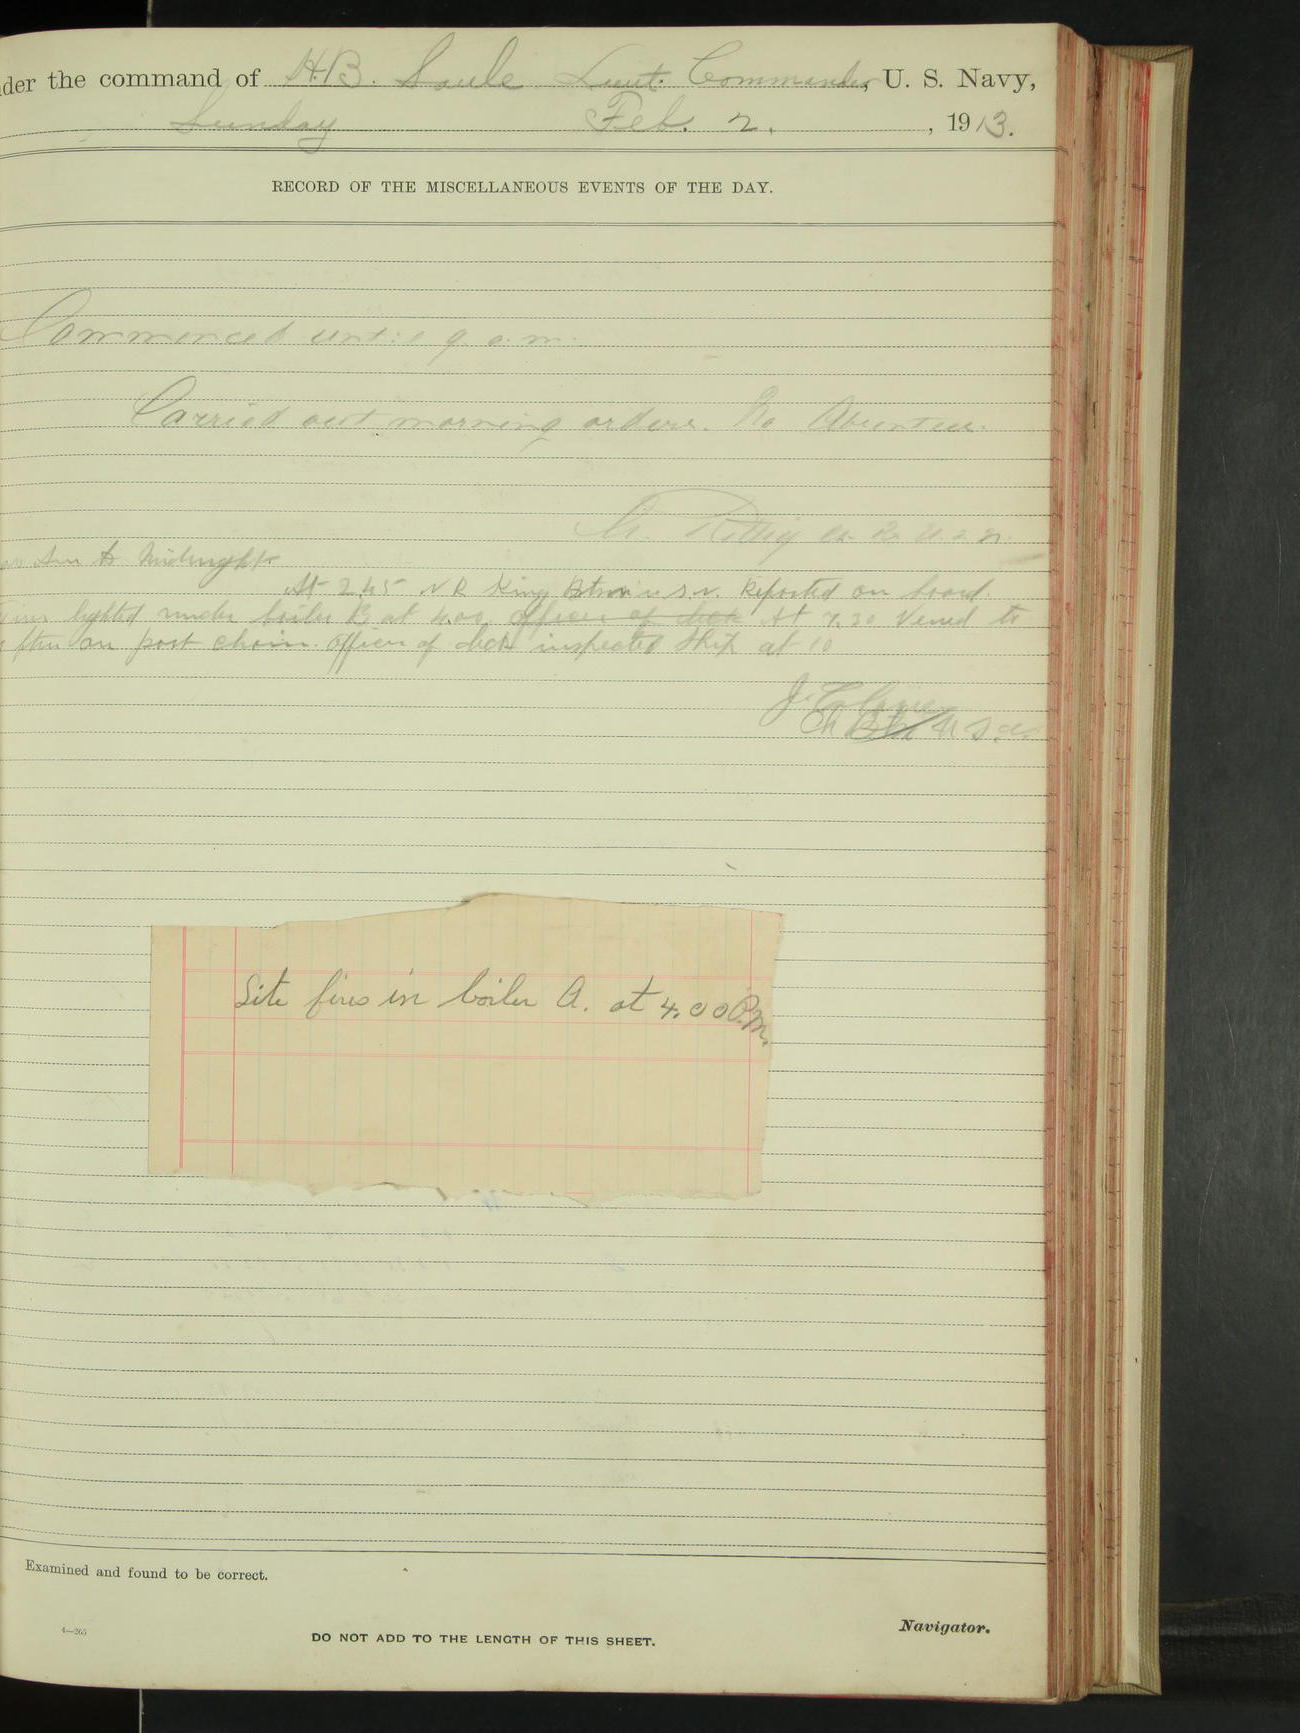 der the command of H.B. Soule Lieut. Commander, U. S. Navy,
Sunday Feb. 2. , 1913.
RECORD OF THE MISCELLANEOUS EVENTS OF THE DAY.
Commenced until 9 a.m.
Carried out morning orders. No Absentees.
Rettig U.S.N.
to Midnight
At 2.45 N R King Btswn U.S.N. Reported on board.
Fires lighted under boiler B at 4.00. officer of deck At 7.30 Veered to
on port chain. officer of deck inspected ship at 10
Ch U S N
Lite fires in boiler A. at 4.00 P.M.
Examined and found to be correct.
4—265
DO NOT ADD TO THE LENGTH OF THIS SHEET.
Navigator.